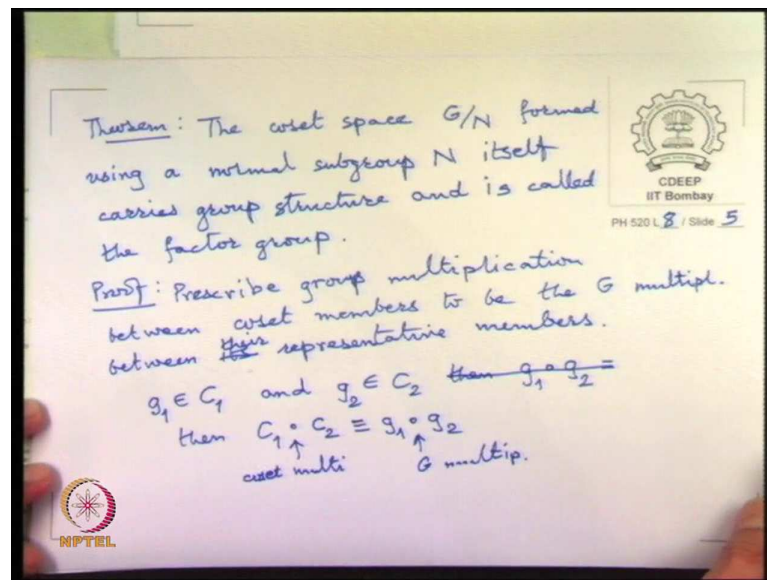 Theorem: The coset space G/N formed
using a normal subgroup N itself
carries group structure and is called
the factor group.
Proof: Prescribe group multiplication
between coset members to be the G multipl.
between their representative members.
g₁ ∈ C₁ and g₂ ∈ C₂ then g₁ ∘ g₂ =
then C₁ ∘ C₂ ≡ g₁ ∘ g₂
coset multi G multip.
CDEEP
IIT Bombay
PH 520 L 8 / Slide 5
NPTEL